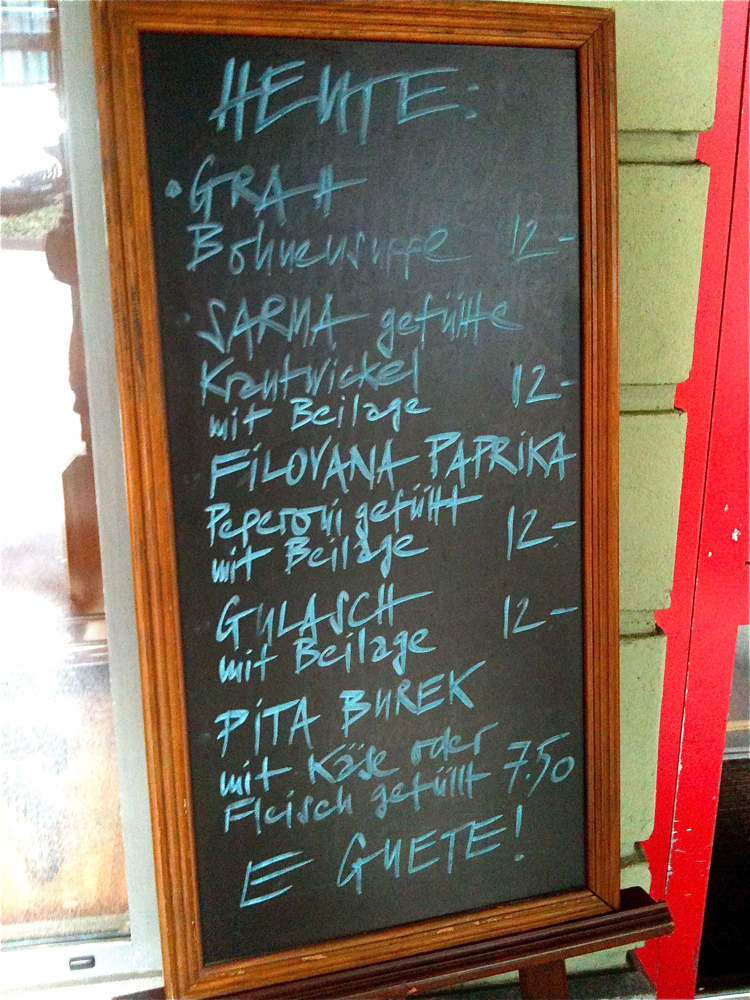 HEUTE:
• GRAH
Bohnensuppe 12.-
SARMA gefüllte
Krautwickel
mit Beilage 12.-
FILOVANA PAPRIKA
Peperoni gefüllt
mit Beilage 12.-
GULASCH
mit Beilage 12.-
PITA BUREK
mit Käse oder
Fleisch gefüllt 7.50
E GUETE!